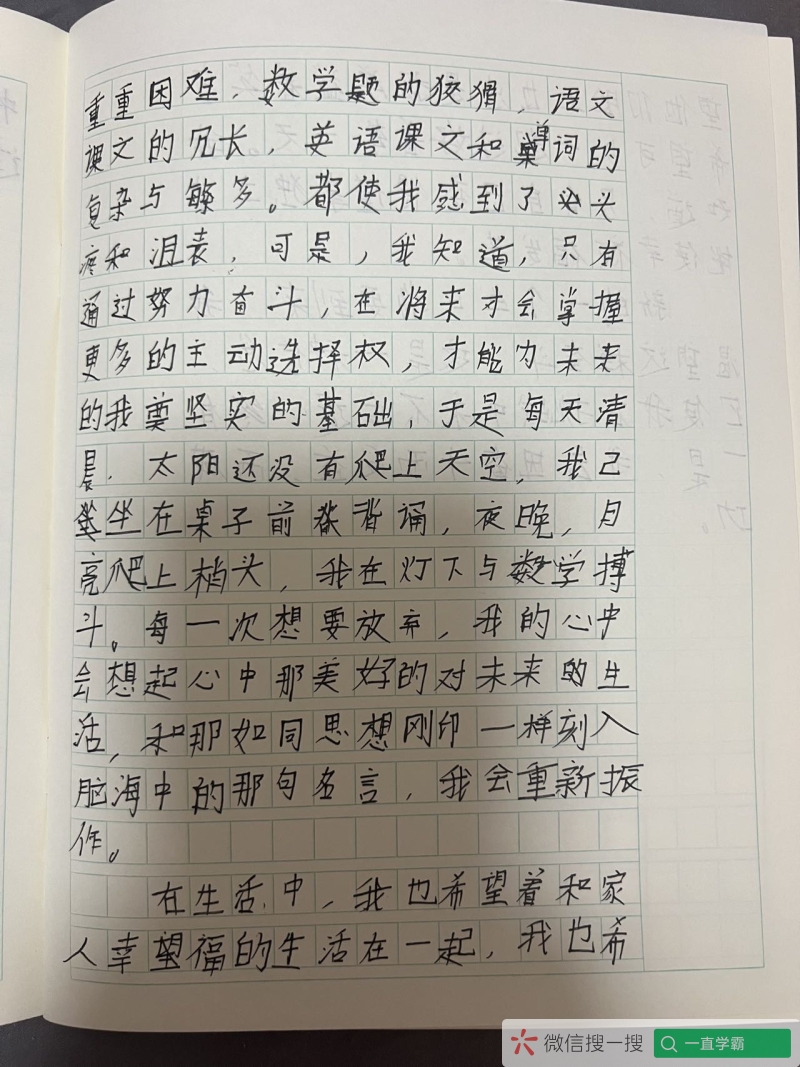 重重困难，数学题的狡猾，语文
课文的冗长，英语课文和单词的
复杂与繁多。都使我感到了头
疼和沮丧，可是，我知道，只有
通过努力奋斗，在将来才会掌握
更多的主动选择权，才能为未来
的我奠坚实的基础，于是每天清
晨，太阳还没有爬上天空，我己
坐在桌子前背诵，夜晚，月
亮爬上梢头，我在灯下与数学搏
斗。每一次想要放弃，我的心中
会想起心中那美好的对未来的生
活，和那如同思想刚印一样刻入
脑海中的那句名言，我会重新振
作。
在生活中，我也希望着和家
人幸福的生活在一起，我也希
微信搜一搜 一直学霸